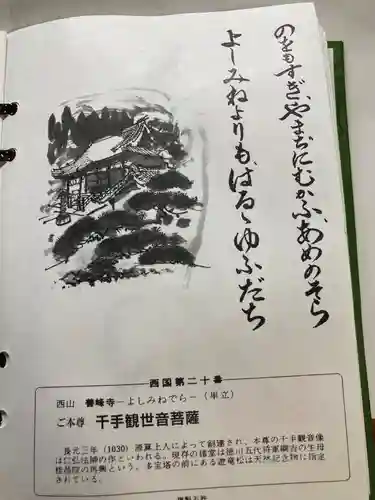 のをもすぎ、やまぢにむかふ、あめのそら
よしみねよりも、はるゝゆふだち
西国第二十番
西山 善峰寺－よしみねでら－（単立）
ご本尊 千手観世音菩薩
長元三年（1030）源算上人によって創建され、本尊の千手観音像
は仁弘法師の作といわれる。現存の諸堂は徳川五代将軍綱吉の生母
桂昌院の再興という。多宝塔の前にある遊竜松は天然記念物に指定
されている。